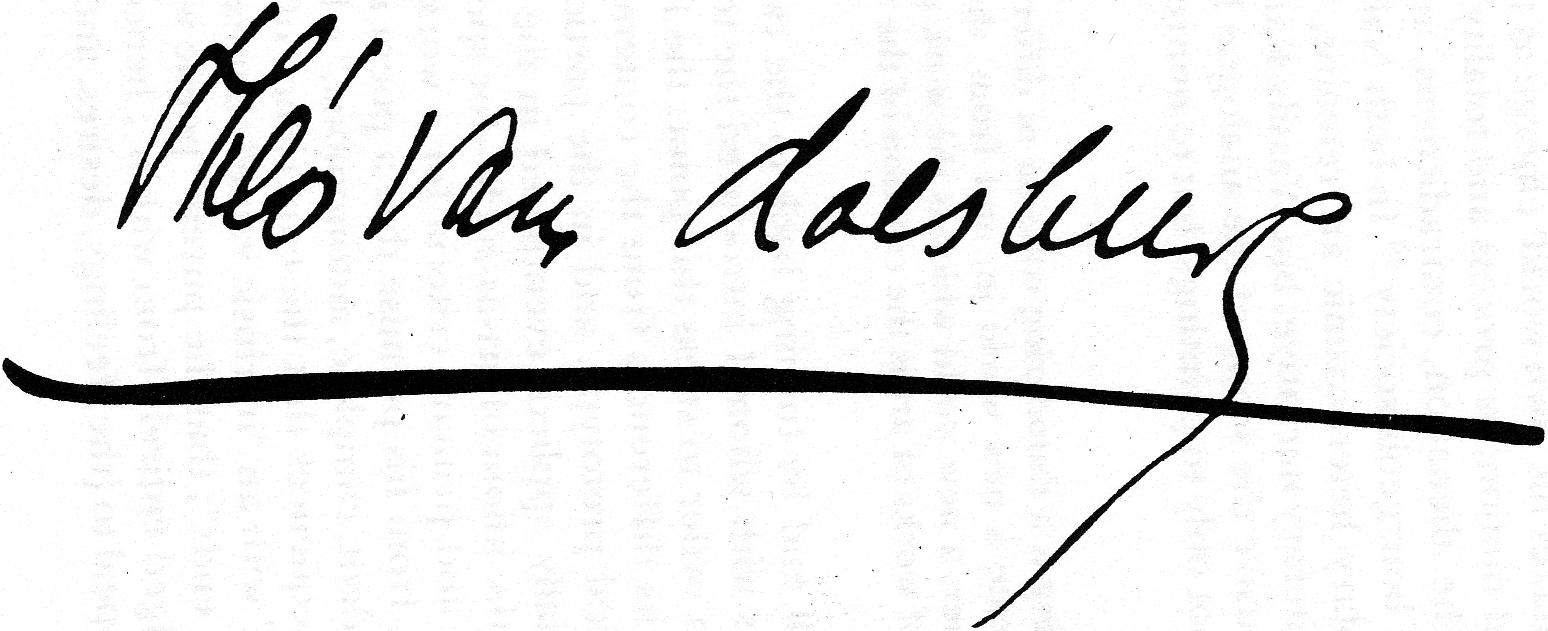 Théo Van Doesburg